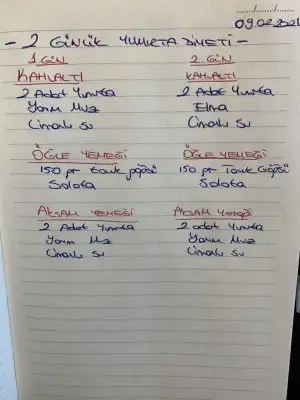 09.02.2021
- 2 GÜNLÜK YUMURTA DİYETİ -
1 GÜN
KAHVALTI
2 Adet Yumurta
Yarım Muz
Limonlu Su
ÖĞLE YEMEĞİ
150 gr tavuk göğsü
Salata
AKŞAM YEMEĞİ
2 Adet Yumurta
Yarım Muz
Limonlu Su
2. GÜN
KAHVALTI
2 Adet Yumurta
Elma
Limonlu Su
ÖĞLE YEMEĞİ
150 gr Tavuk Göğsü
Salata
AKŞAM Yemeği
2 adet Yumurta
Yarım Muz
Limonlu Su